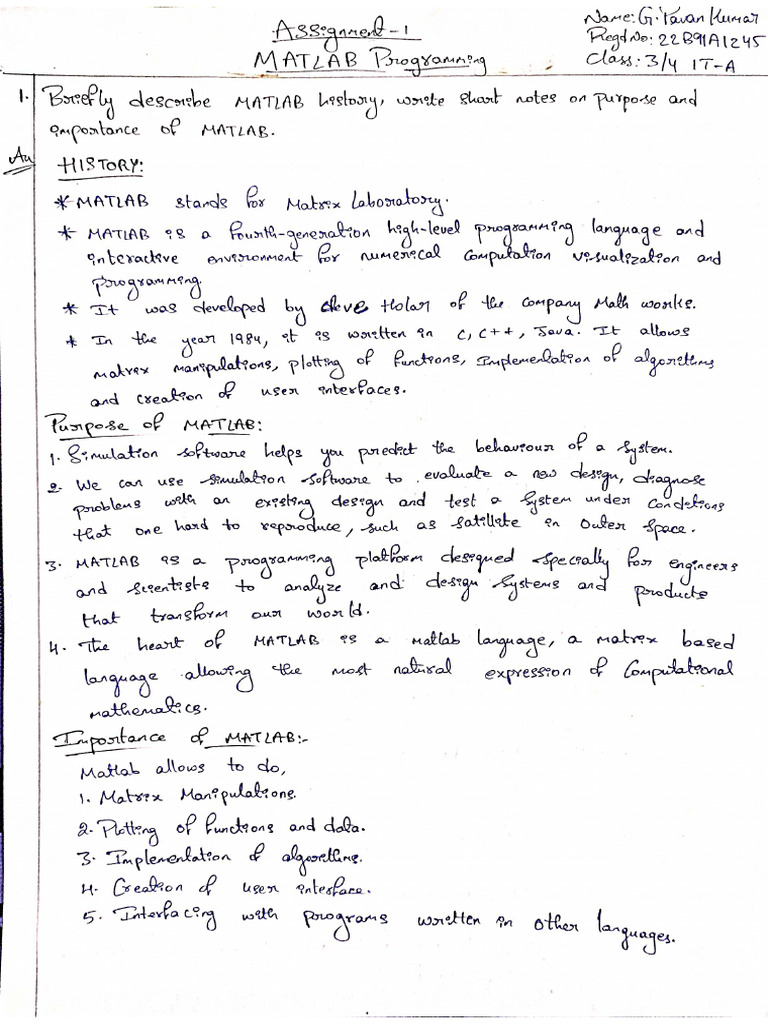 Assignment-1
MATLAB Programming
Name: G. Pavan Kumar
Regd No: 22B91A1245
Class: 3/4 IT-A
1. Briefly describe MATLAB history, write short notes on purpose and
importance of MATLAB.
An HISTORY:
* MATLAB stands for Matrix Laboratory.
* MATLAB is a fourth-generation high-level programming language and
interactive environment for numerical computation visualization and
programming.
* It was developed by cleve Holar of the company Math works.
* In the year 1984, it is written in C, C++, Java. It allows
matrex manipulations, plotting of functions, implementation of algorithms
and creation of user interfaces.
Purpose of MATLAB:
1. Simulation software helps you predict the behaviour of a system.
2. We can use simulation software to evaluate a new design, diagnose
problems with an existing design and test a system under condetions
that one hard to reproduce, such as satillite in outer space.
3. MATLAB is a programming platform designed specially for engineers
and scientists to analyze and design systems and products
that transform our world.
4. The heart of MATLAB is a matlab language, a matrix based
language allowing the most natural expression of Computational
mathematics.
Importance of MATLAB:-
Matlab allows to do,
1. Matrix Manipulations.
2. Plotting of functions and data.
3. Implementation of algorithms.
4. Creation of user interface.
5. Interfacing with programs written in other languages.